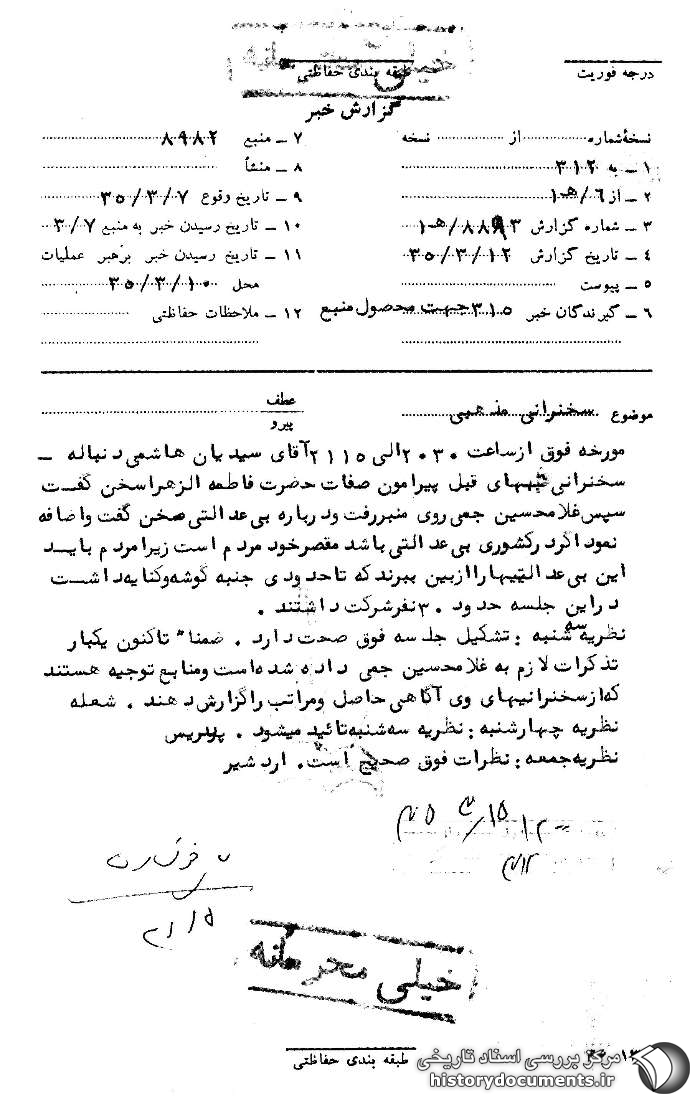 خیلی محرمانه
درجه فوریت
طبقه بندی حفاظتی
گزارش خبر
نسخهٔ شماره از نسخه
۱ ــ به ۳۱۲
۲ ــ از ۶/هـ۱
۳ ــ شماره گزارش ۸۸۹۳/هـ۱
۴ ــ تاریخ گزارش ۳۵/۳/۱۲
۵ ــ پیوست
۶ ــ گیرندگان خبر ۳۱۵ جهت محصول منبع
۷ ــ منبع ۸۹۸۲
۸ ــ منشأ
۹ ــ تاریخ وقوع ۳۵/۳/۷
۱۰ ــ تاریخ رسیدن خبر به منبع ۳/۷
۱۱ ــ تاریخ رسیدن خبر برهبر عملیات
محل ۳۵/۳/۱۰
۱۲ ــ ملاحظات حفاظتی
موضوع سخنرانی مذهبی
عطف
پیرو
مورخه فوق ازساعت ۲۰۳۰ الی ۲۱۱۵ آقای سیدیان هاشمی دنباله ــ
سخنرانی شبهای قبل پیرامون صفات حضرت فاطمه الزهراسخن گفت
سپس غلامحسین جمی روی منبررفت ودرباره بی عدالتی سخن گفت واضافه
نمود اگردرکشوری بی عدالتی باشد مقصرخود مردم است زیرامردم باید
این بی عدالتیهاراازبین ببرند که تاحدودی جنبه گوشه وکنایه داشت
دراین جلسه حدود ۳۰نفرشرکت داشتند .
نظریه سه شنبه : تشکیل جلسه فوق صحت دارد . ضمناً تاکنون یکبار
تذکرات لازم به غلامحسین جمی داده شده است ومنابع توجیه هستند
که ازسخنرانیهای وی آگاهی حاصل ومراتب راگزارش دهند . شعله
نظریه چهارشنبه : نظریه سه شنبه تائید میشود . پردیس
نظریه جمعه : نظرات فوق صحیح است . اردشیر
خیلی محرمانه
طبقه بندی حفاظتی
مرکز بررسی اسناد تاریخی
historydocuments.ir